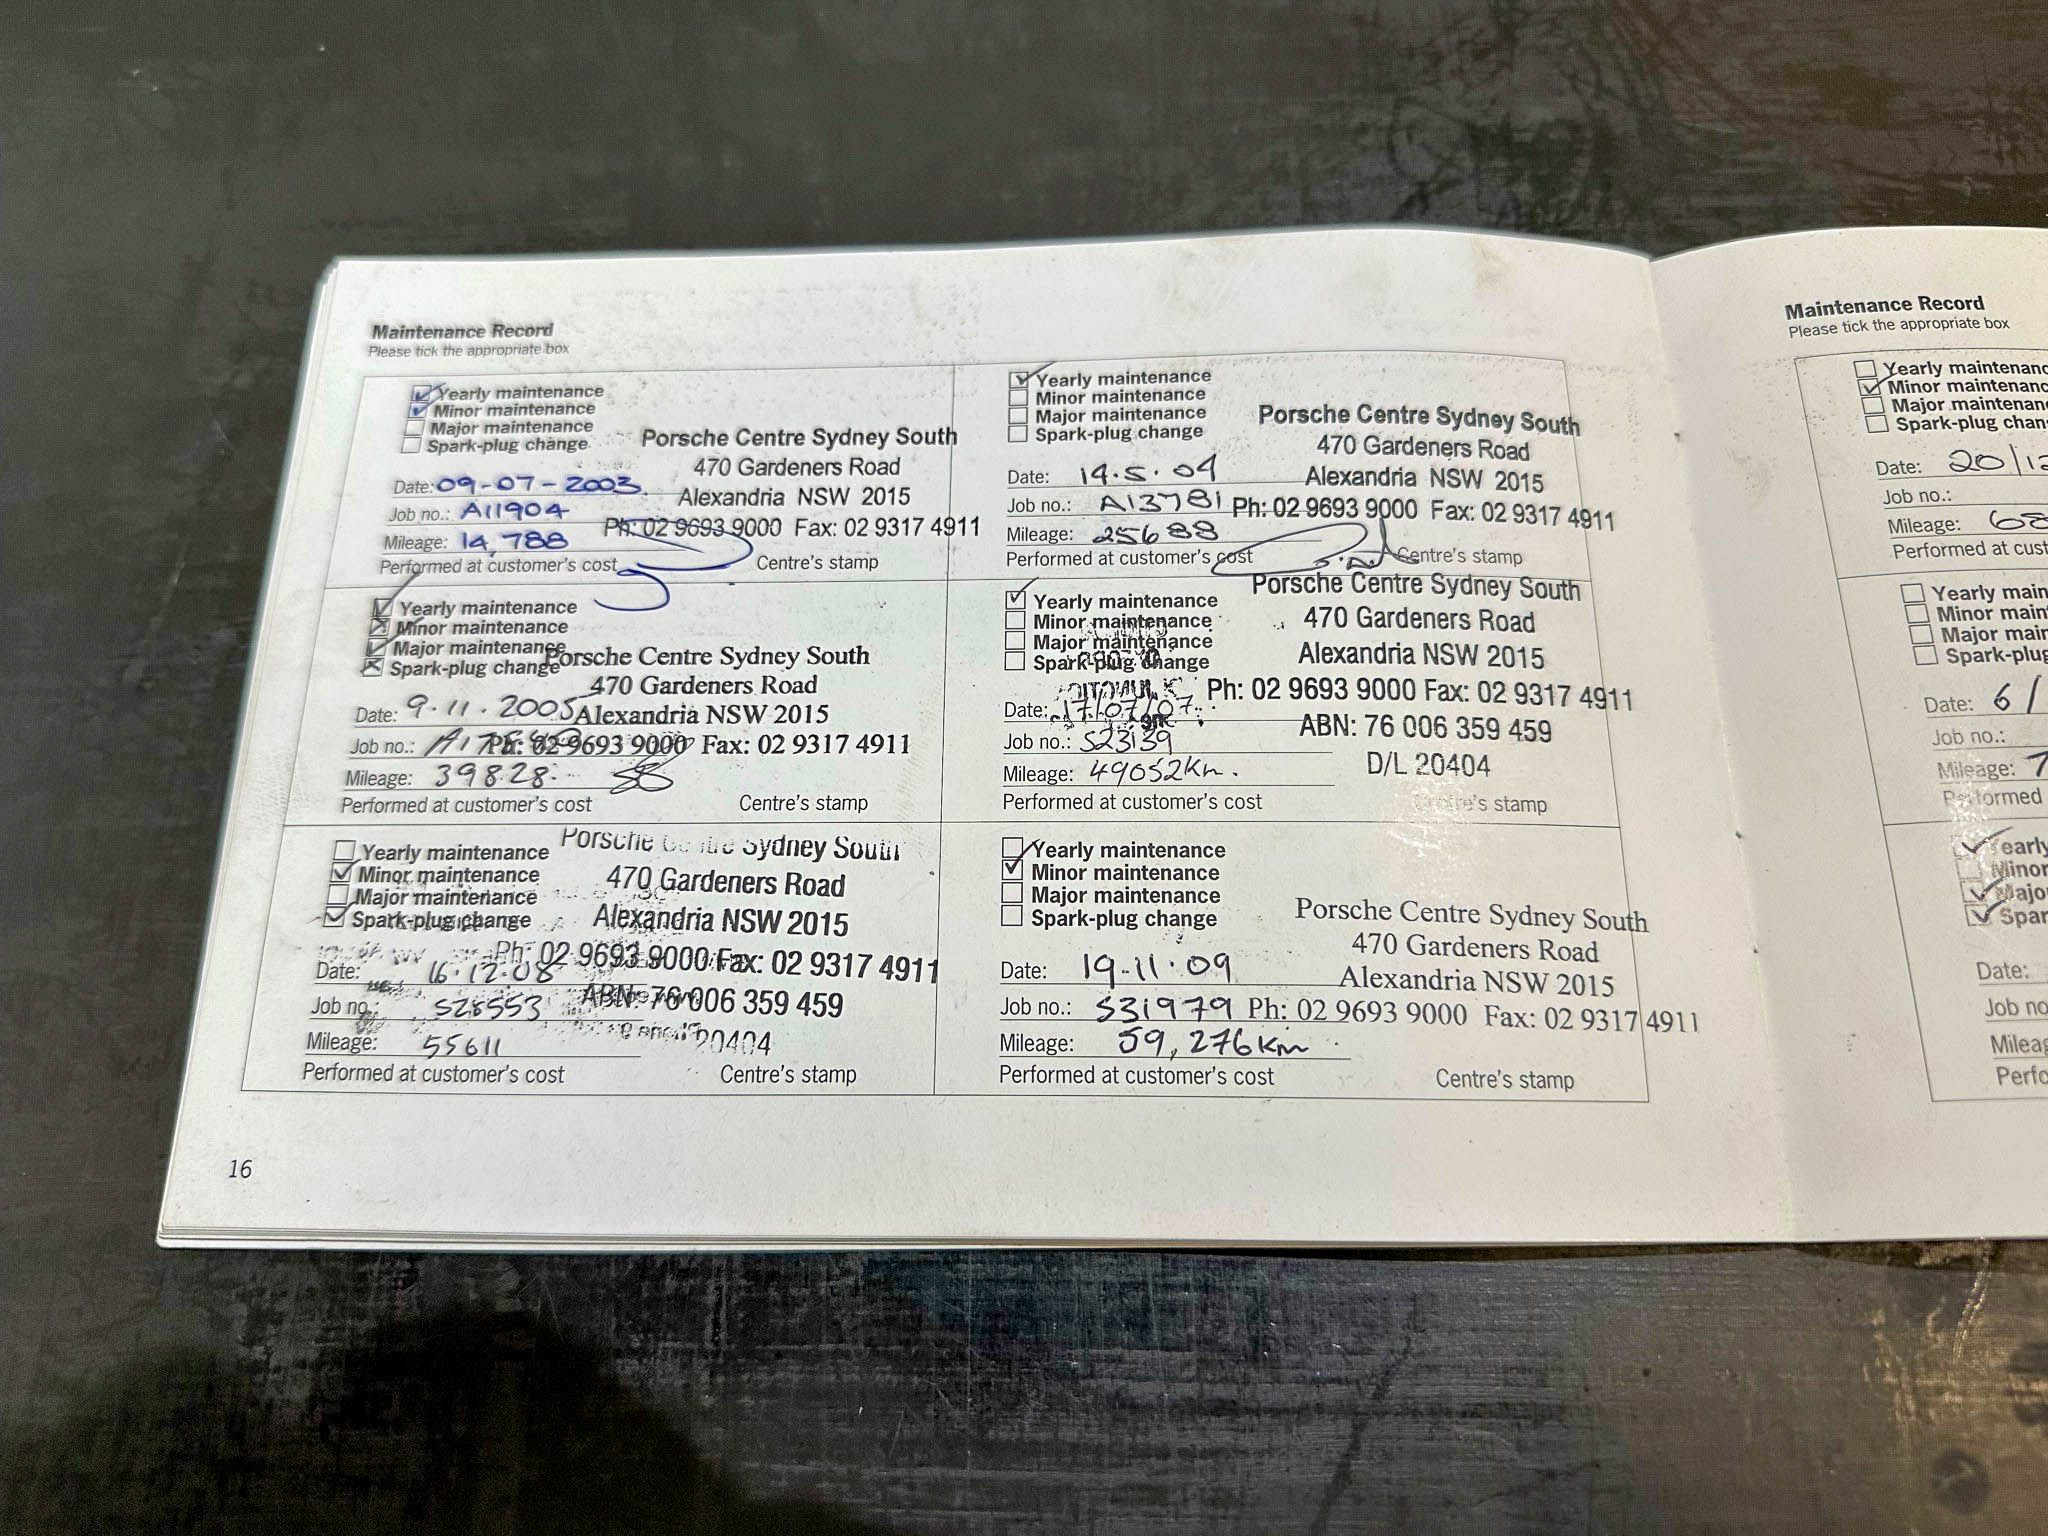 Maintenance Record
Please tick the appropriate box
Yearly maintenance
Minor maintenance
Major maintenance
Spark-plug change
Porsche Centre Sydney South
470 Gardeners Road
Alexandria NSW 2015
Ph: 02 9693 9000 Fax: 02 9317 4911
Date: 09-07-2003
Job no.: A11904
Mileage: 14,788
Performed at customer's cost
Centre's stamp
Yearly maintenance
Minor maintenance
Major maintenance
Spark-plug change
Porsche Centre Sydney South
470 Gardeners Road
Alexandria NSW 2015
Ph: 02 9693 9000 Fax: 02 9317 4911
Date: 14.5.04
Job no.: A13781
Mileage: 25688
Performed at customer's cost
Centre's stamp
Yearly maintenance
Minor maintenance
Major maintenance
Spark-plug change
Porsche Centre Sydney South
470 Gardeners Road
Alexandria NSW 2015
Ph: 02 9693 9000 Fax: 02 9317 4911
Date: 9.11.2005
Job no.:
Mileage: 39828
Performed at customer's cost
Centre's stamp
Yearly maintenance
Minor maintenance
Major maintenance
Spark-plug change
Porsche Centre Sydney South
470 Gardeners Road
Alexandria NSW 2015
Ph: 02 9693 9000 Fax: 02 9317 4911
ABN: 76 006 359 459
D/L 20404
Date: 17/07/07
Job no.: S23139
Mileage: 49052km.
Performed at customer's cost
Centre's stamp
Yearly maintenance
Minor maintenance
Major maintenance
Spark-plug change
Porsche Centre Sydney South
470 Gardeners Road
Alexandria NSW 2015
Ph: 02 9693 9000 Fax: 02 9317 4911
ABN: 76 006 359 459
20404
Date: 16.12.08
Job no.: S28553
Mileage: 55611
Performed at customer's cost
Centre's stamp
Yearly maintenance
Minor maintenance
Major maintenance
Spark-plug change
Porsche Centre Sydney South
470 Gardeners Road
Alexandria NSW 2015
Ph: 02 9693 9000 Fax: 02 9317 4911
Date: 19-11-09
Job no.: S31979
Mileage: 59,276km
Performed at customer's cost
Centre's stamp
16
Maintenance Record
Please tick the appropriate box
Yearly maintenanc
Minor maintenanc
Major maintenan
Spark-plug chan
Date: 20/12
Job no.:
Mileage: 68
Performed at cust
Yearly main
Minor main
Major mai
Spark-plug
Date: 6/
Job no.:
Mileage: 7
Performed
Yearly
Minor
Majo
Spar
Date:
Job no
Mileag
Perfo